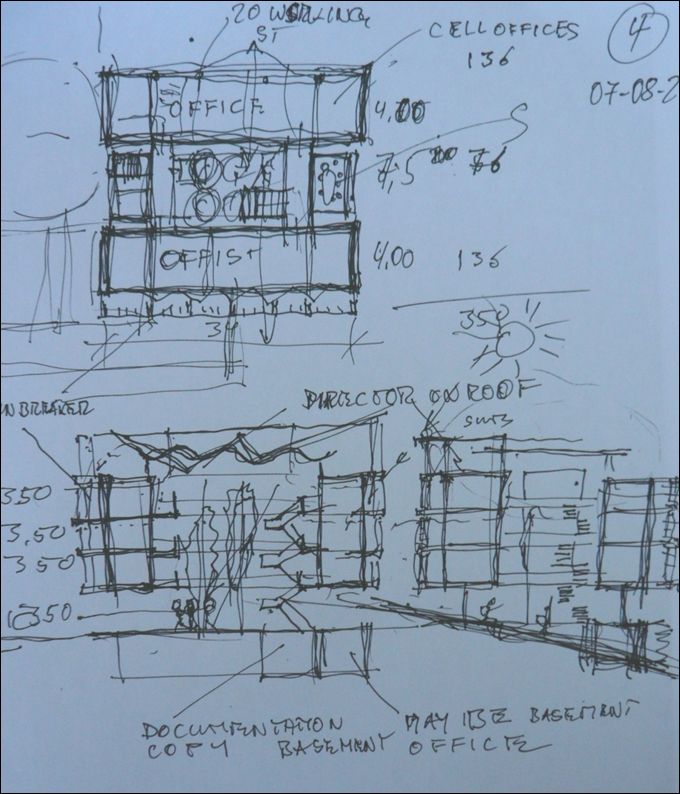 20 WORKING
ST
CELL OFFICES
136
4
07-08-2
OFFICE
4,00
S
7,5
76
OFFIST
4,00
136
3
350
NBREAKER
DIRECTOR ON ROOF
3,50
3,50
350
350
DOCUMENTATION
COPY BASEMENT
MAY BE BASEMENT
OFFICE